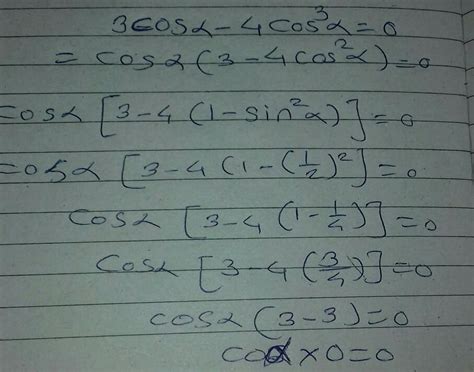 3cosα - 4cos³α = 0
= cosα (3 - 4cos²α) = 0
cosα [3 - 4 (1 - sin²α)] = 0
=cosα [3 - 4 (1 - (1/2)²] = 0
cosα [3 - 4 (1 - 1/4)] = 0
cosα [3 - 4 (3/4)] = 0
cosα (3 - 3) = 0
cosα × 0 = 0